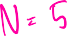 N = 5